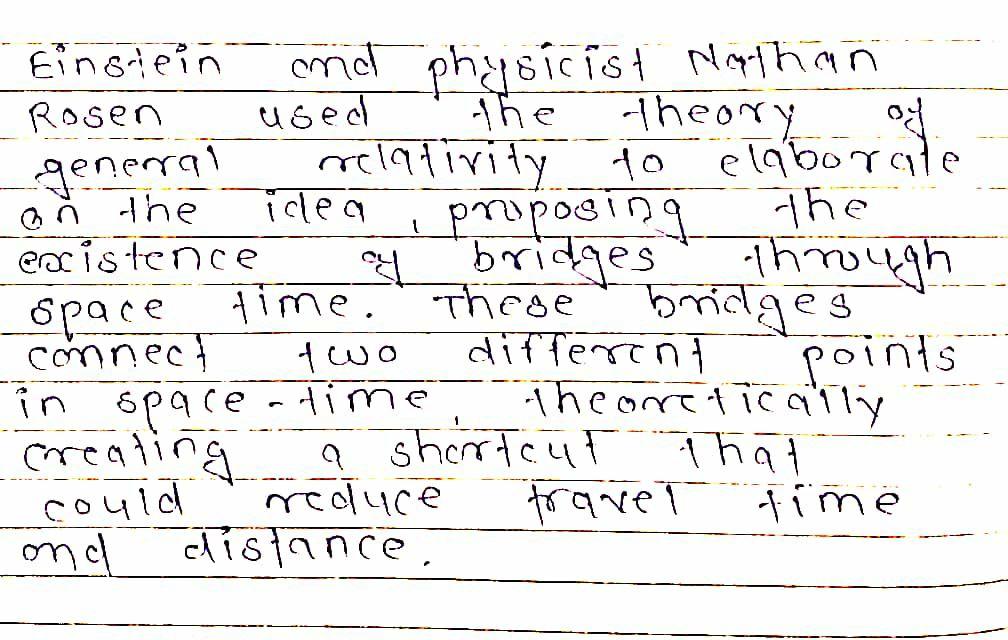 Einstein and physicist Nathan
Rosen used the theory of
general relativity to elaborate
on the idea, proposing the
existence of bridges through
space time. These bridges
connect two different points
in space-time, theoretically
creating a shortcut that
could reduce travel time
and distance.